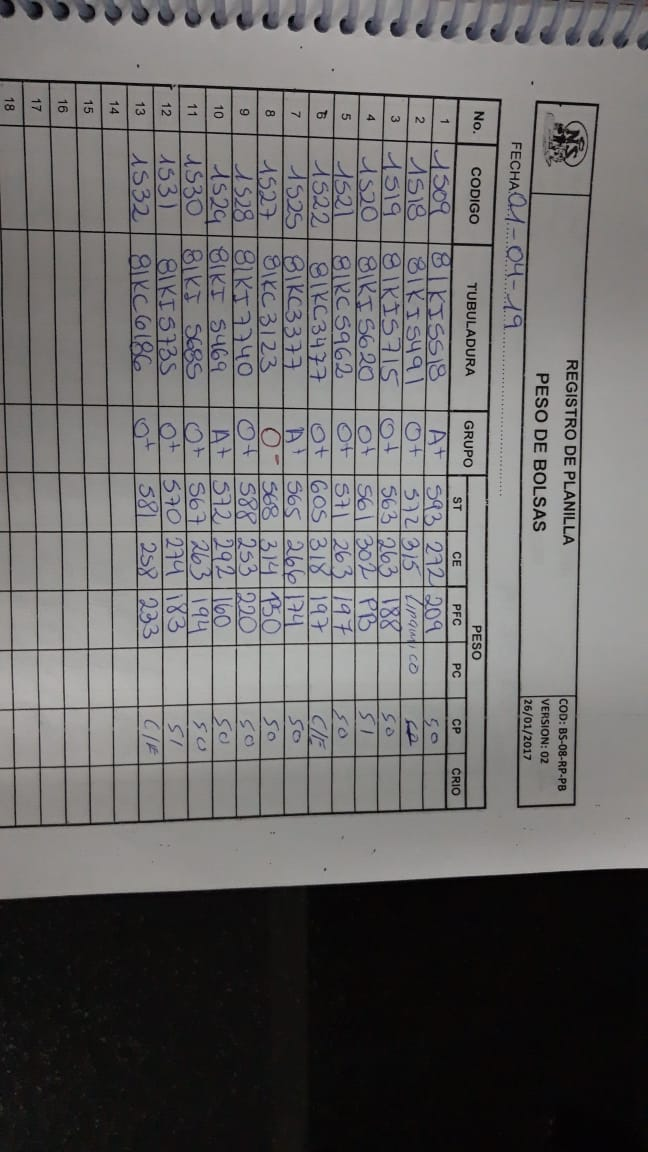 NS
REGISTRO DE PLANILLA
PESO DE BOLSAS
COD: BS-08-RP-PB
VERSION: 02
26/01/2017
FECHA: 01-04-19
No. CODIGO TUBULADURA GRUPO PESO
ST CE PFC PC CP CRIO
1 1509 81KI5518 A+ 593 272 209 50
2 1518 81KI5491 O+ 572 315 Lipémico
3 1519 81KI5715 O+ 563 263 188 50
4 1520 81KI5620 O+ 561 302 PB 51
5 1521 81KC5962 O+ 571 263 197 50
6 1522 81KC3477 O+ 605 318 197 C/F
7 1525 81KC3377 A+ 565 266 174 50
8 1527 81KC3123 O- 568 314 150 50
9 1528 81KI7740 O+ 588 253 220 50
10 1529 81KI 5469 A+ 572 292 160 50
11 1530 81KI 5685 O+ 567 263 194 50
12 1531 81KI5735 O+ 570 274 183 51
13 1532 81KC6186 O+ 581 258 233 C/F
14
15
16
17
18